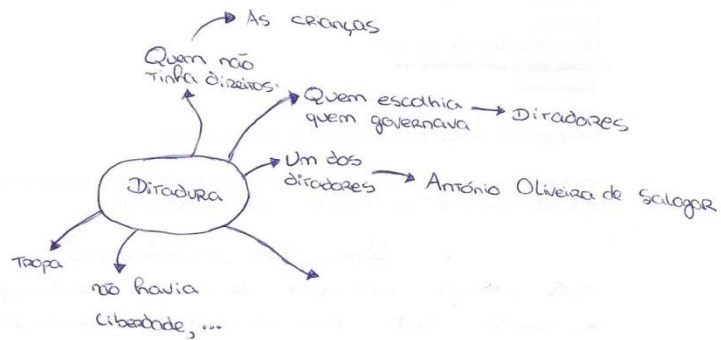 As crianças
Quem não
tinha direitos.
Quem escolhia
quem governava
Ditadores
Um dos
ditadores
António Oliveira de Salogar
Ditadura
Tropa
não havia
liberdade, ...